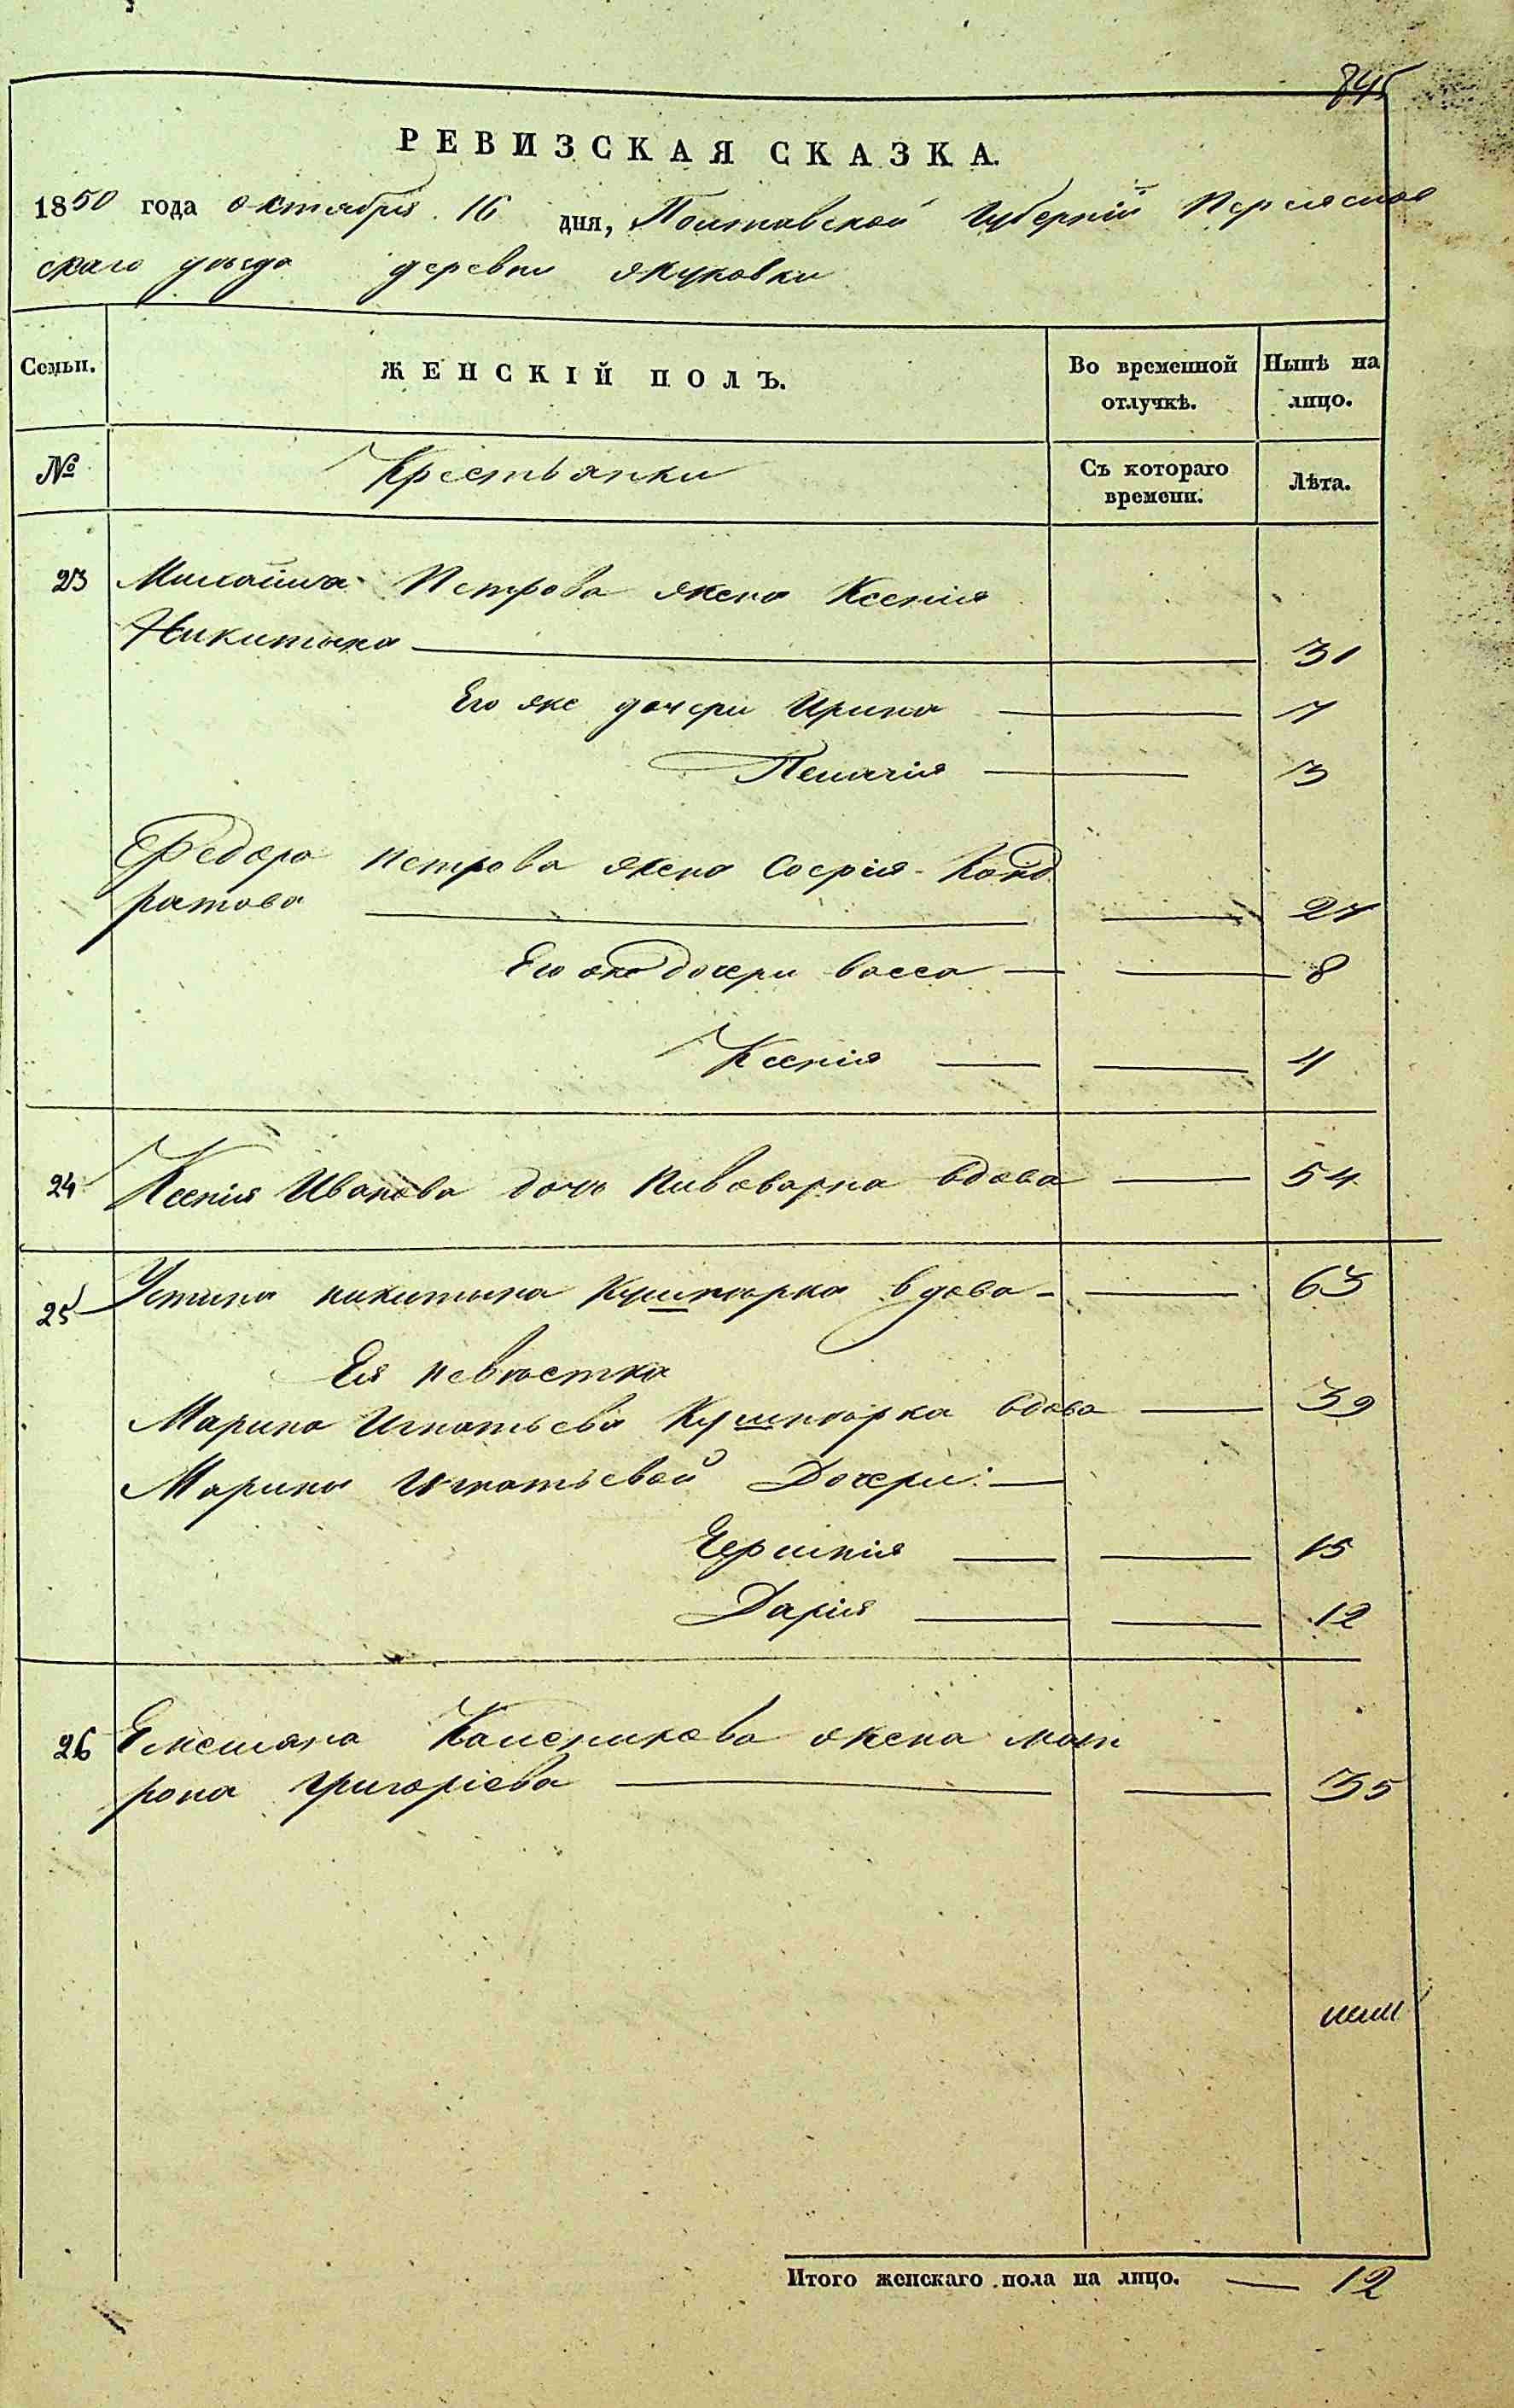 845
РЕВИЗСКАЯ СКАЗКА.
1850 года октября 16 дня, Полтавской Губерніи Переяслов
скаго уезда деревни Якуковки
Семьи. ЖЕНСКІЙ ПОЛЪ. Во временной отлучкѣ. Нынѣ на лицо.
№ Крестьянки Съ котораго времени. Лѣта.
23 Михайила Петрова жена Ксенія
Никитина — 31
Его же дочери Ирина — 7
Пелагія — 3
Федора Петрова жена Софія Конд
ратова — 27
Его же дочери Васса — 8
Ксенія — 4
24 Ксенія Иванова дочь Пивоварка вдова — 54
25 Устина Никитина Кушнюрка вдова — 63
Ея невѣстка
Марина Игнатьева Кушнюрка вдова — 39
Марины Игнатьевой Дочери: —
Ефимія — 15
Дарія — 12
26 Емеляна Каленикова жена Мат
рона Григоріева — 35
Итого женскаго пола на лицо. — 12